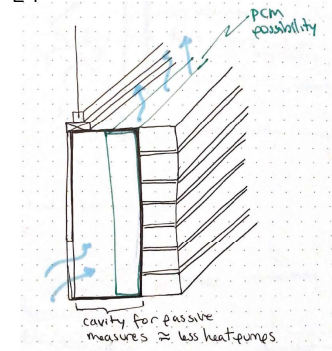 PCM
possibility
cavity for passive
measures ≈ less heat pumps